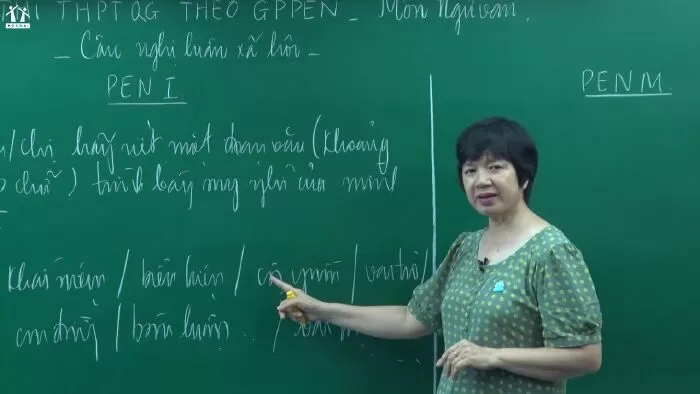 THPTQG THEO GPPEN _ Môn Ngữ văn.
_ Câu nghị luận xã hội _
PEN I
PEN M.
/chị hãy viết một đoạn văn (khoảng
chữ) trình bày suy nghĩ của mình
khái niệm / biểu hiện / cội nguồn / vai trò /
con đường / bàn luận .. /
HOCMAI